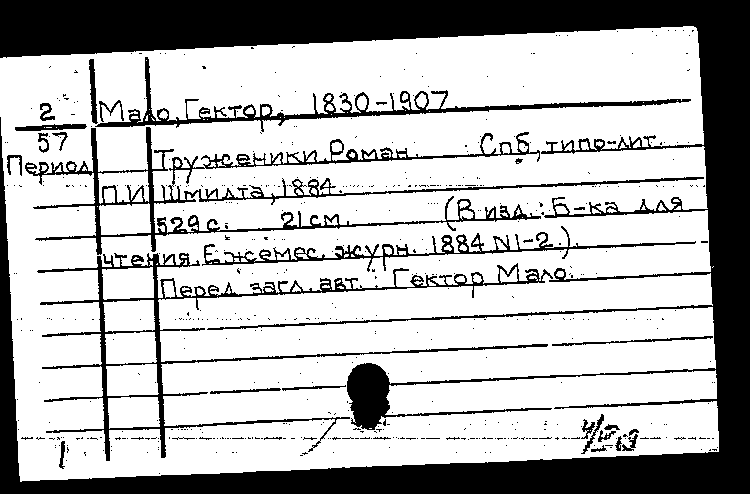 2
57
Период
Мало, Гектор, 1830-1907.
Труженики. Роман. Спб, типо-лит.
П.И. Шмидта, 1884.
529 с. 21 см. (В изд.: Б-ка для
чтения. Ежемес. журн. 1884 N1-2.).
Перед загл. авт.: Гектор Мало.
1